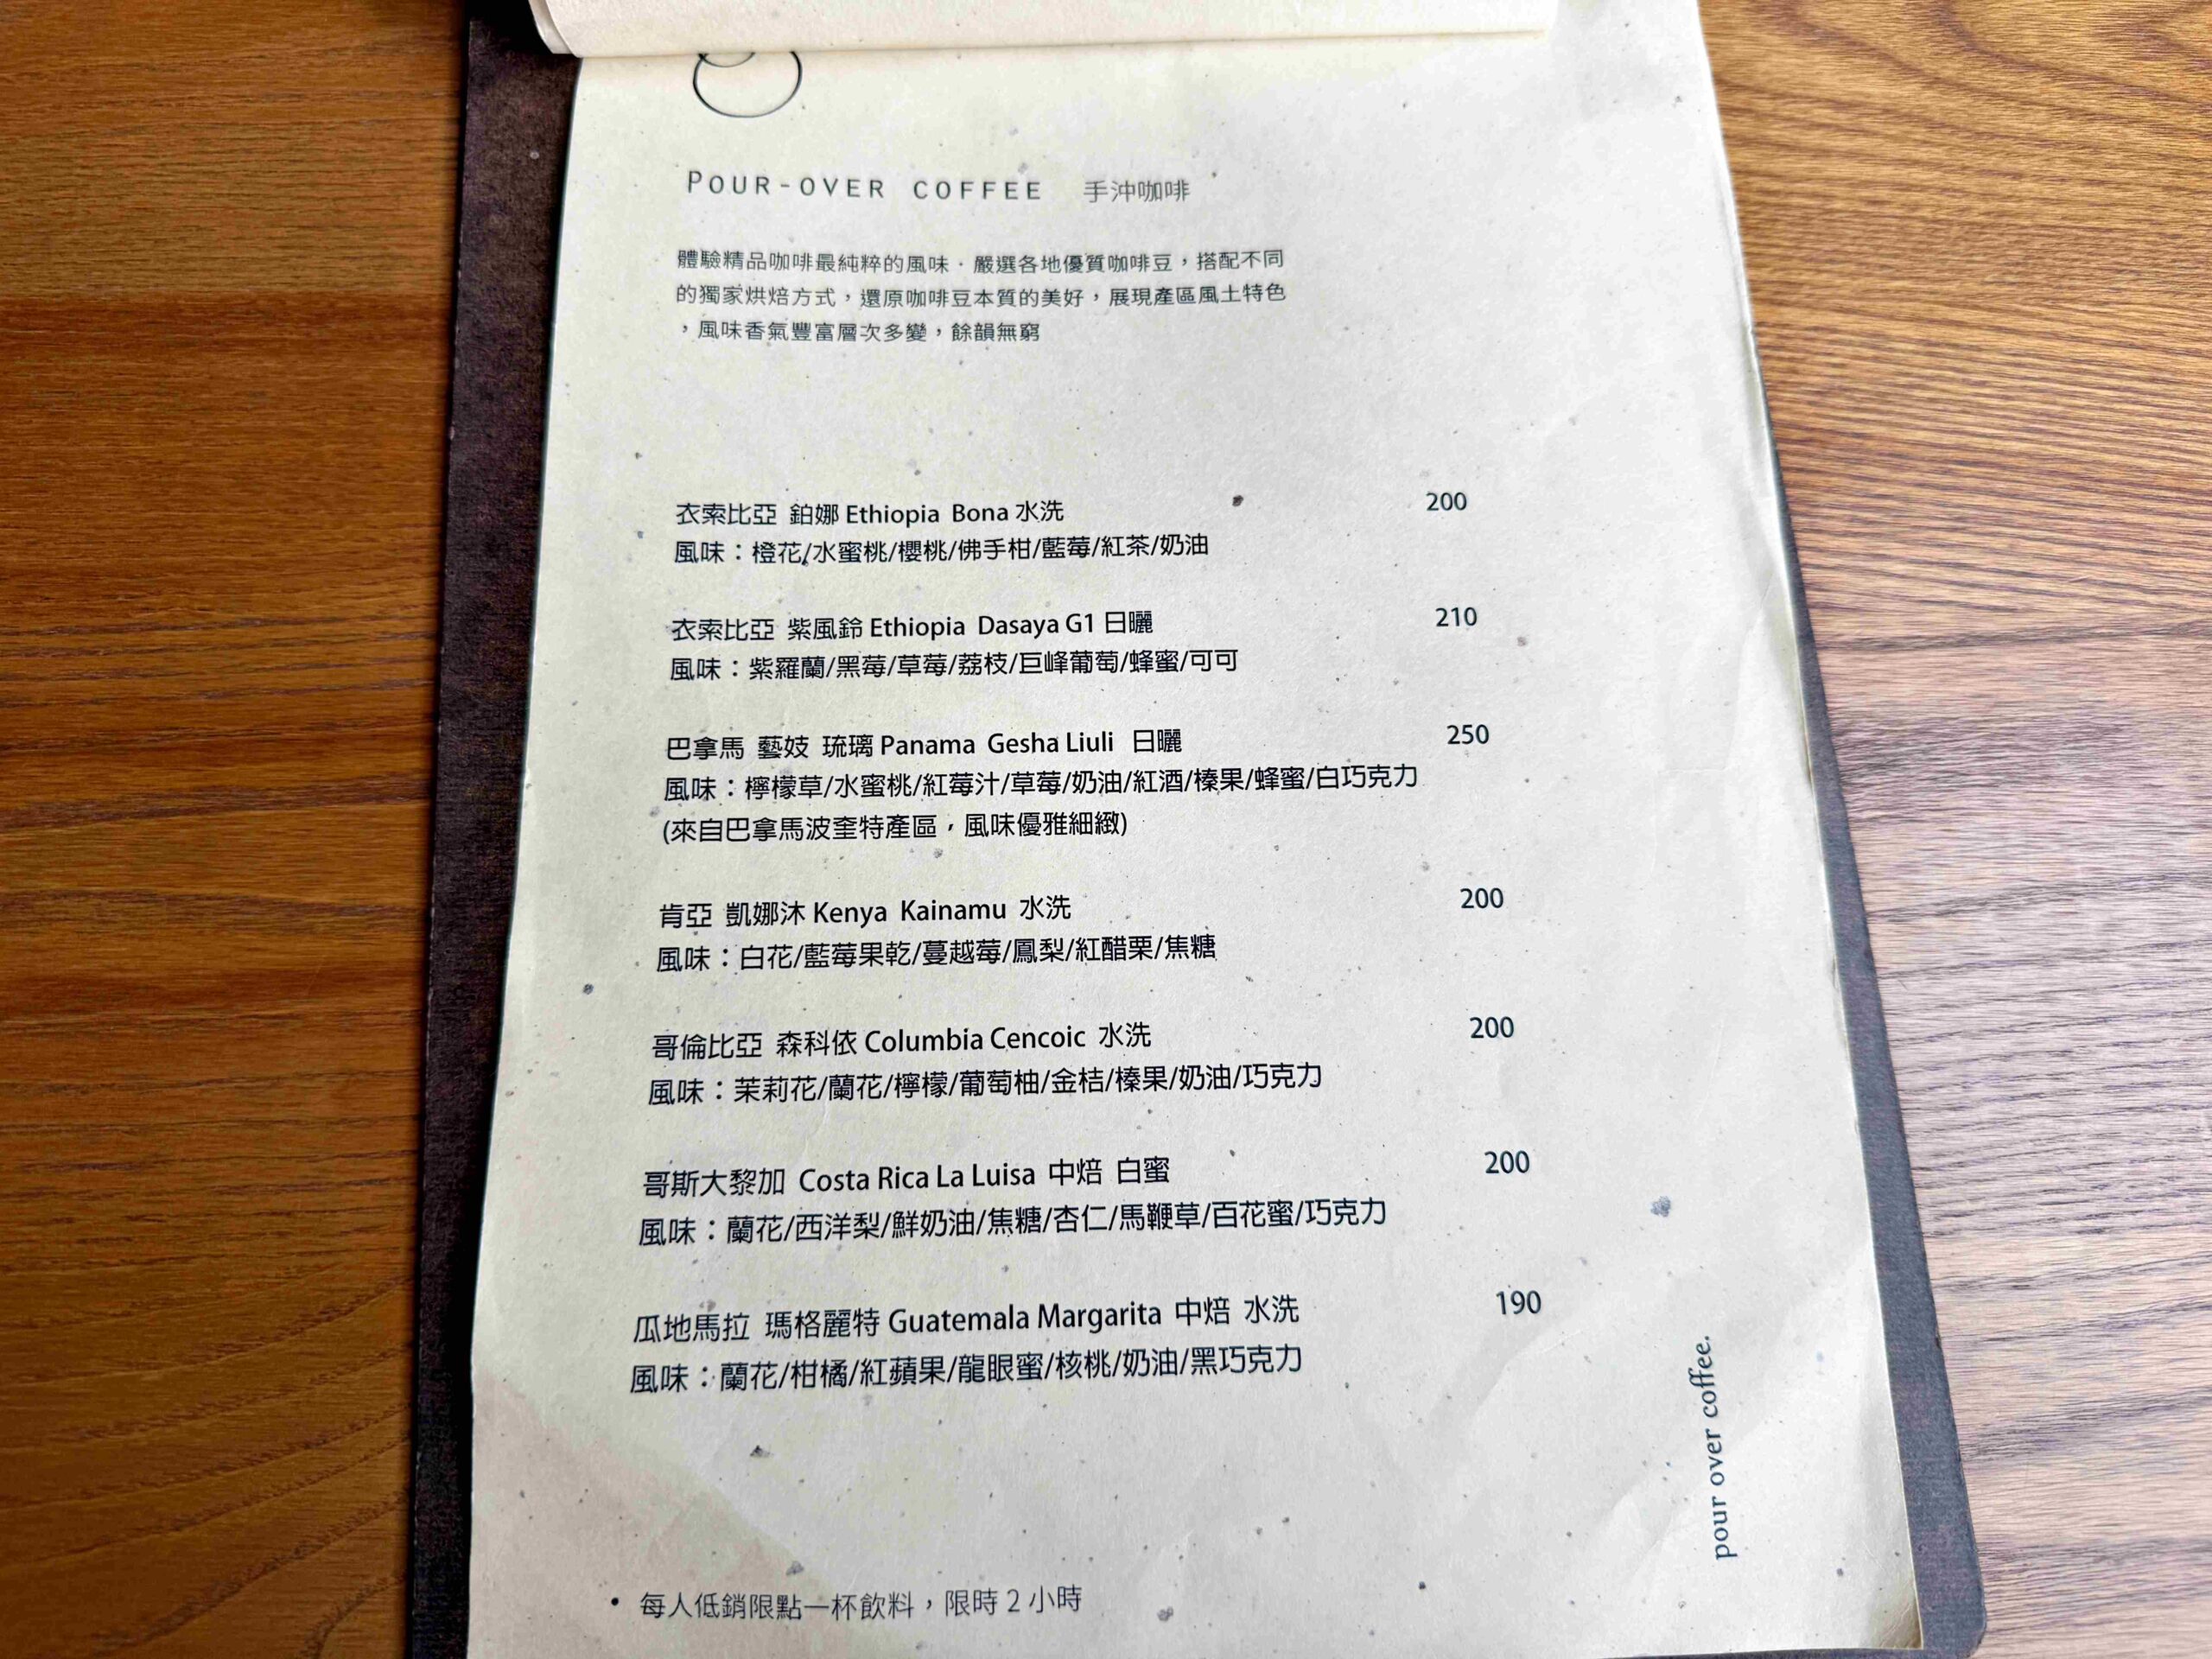 POUR-OVER COFFEE 手沖咖啡
體驗精品咖啡最純粹的風味．嚴選各地優質咖啡豆，搭配不同
的獨家烘焙方式，還原咖啡豆本質的美好，展現產區風土特色
，風味香氣豐富層次多變，餘韻無窮
衣索比亞 鉑娜 Ethiopia Bona 水洗 200
風味：橙花/水蜜桃/櫻桃/佛手柑/藍莓/紅茶/奶油
衣索比亞 紫風鈴 Ethiopia Dasaya G1 日曬 210
風味：紫羅蘭/黑莓/草莓/荔枝/巨峰葡萄/蜂蜜/可可
巴拿馬 藝妓 琉璃 Panama Gesha Liuli 日曬 250
風味：檸檬草/水蜜桃/紅莓汁/草莓/奶油/紅酒/榛果/蜂蜜/白巧克力
(來自巴拿馬波奎特產區，風味優雅細緻)
肯亞 凱娜沐 Kenya Kainamu 水洗 200
風味：白花/藍莓果乾/蔓越莓/鳳梨/紅醋栗/焦糖
哥倫比亞 森科依 Columbia Cencoic 水洗 200
風味：茉莉花/蘭花/檸檬/葡萄柚/金桔/榛果/奶油/巧克力
哥斯大黎加 Costa Rica La Luisa 中焙 白蜜 200
風味：蘭花/西洋梨/鮮奶油/焦糖/杏仁/馬鞭草/百花蜜/巧克力
瓜地馬拉 瑪格麗特 Guatemala Margarita 中焙 水洗 190
風味：蘭花/柑橘/紅蘋果/龍眼蜜/核桃/奶油/黑巧克力
pour over coffee.
• 每人低銷限點一杯飲料，限時 2 小時